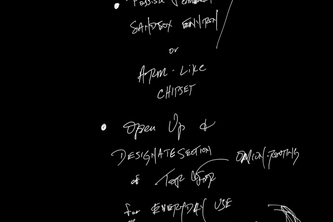 SANDBOX ENVIRON
OR
ARM-LIKE
CHIPSET
• OPEN UP &
DESIGNATE SECTION ONION-ROUTING
of TOR
for EVERYDAY USE